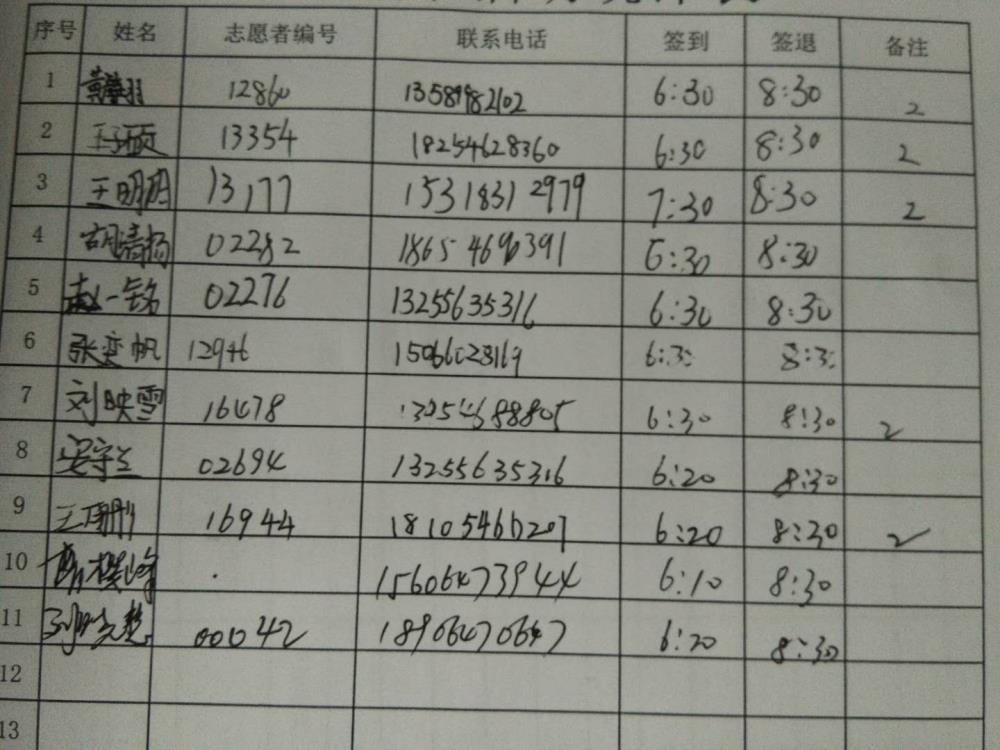 序号 姓名 志愿者编号 联系电话 签到 签退 备注
1 12860 13589982102 6:30 8:30 2
2 王硕 13354 18254628360 6:30 8:30 2
3 王明明 13177 15318312979 7:30 8:30 2
4 胡清扬 02282 18654690391 6:30 8:30
5 赵一铭 02276 13255635316 6:30 8:30
6 张奕帆 12946 15066028169 6:3 8:3
7 刘映雪 16478 13054688805 6:30 8:30 2
8 安守兰 02694 13255635316 6:20 8:30
9 16944 18105460207 6:20 8:30 2
10 15606473944 6:10 8:30
11 00042 18906470647 6:20 8:30
12
13